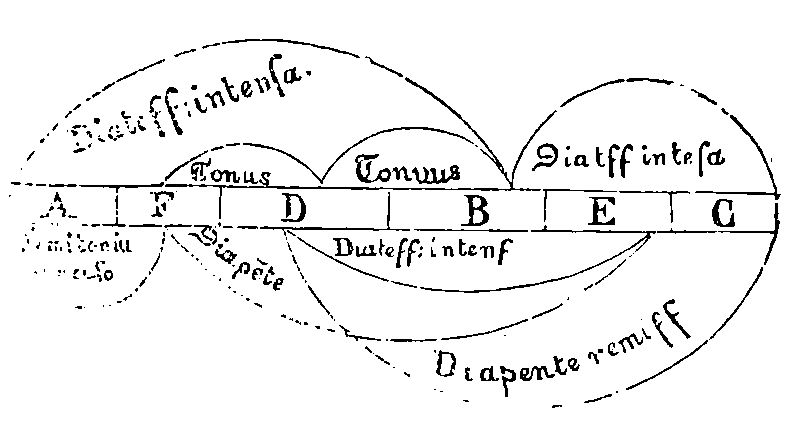 Diateſſ: intenſa.
Tonus
Tonuus
Diatſſ inteſa
A F D B E C
Semitoniu
Diapẽte
Diateſſ: intenſ
Diapente remiſſ